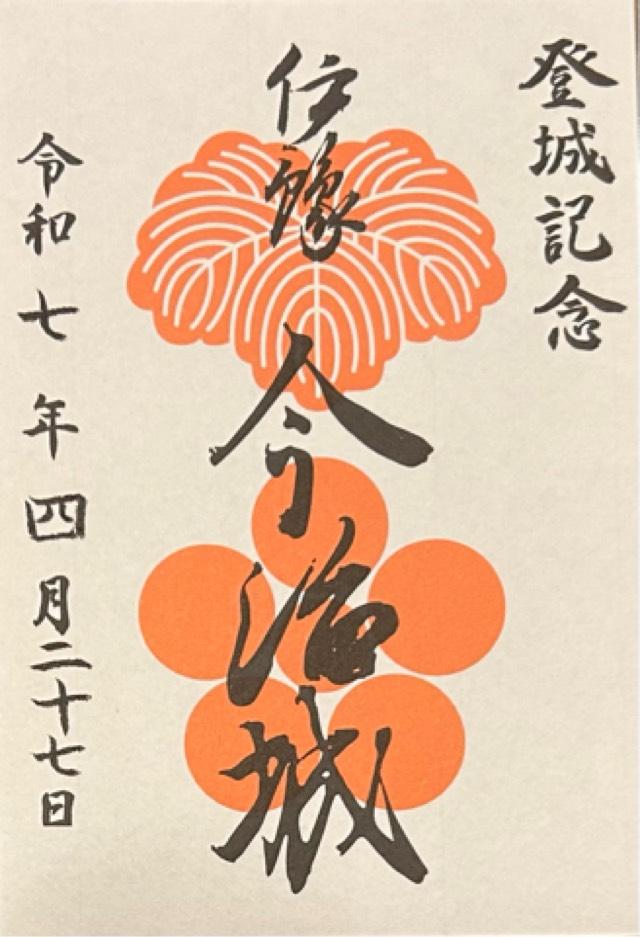 登城記念
伊豫
今治城
令和七年四月二十七日